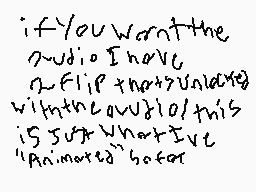 if You want the
audio I have
a Flip thats unlocked
with the audio! this
is Just what I've
"Animated" so far